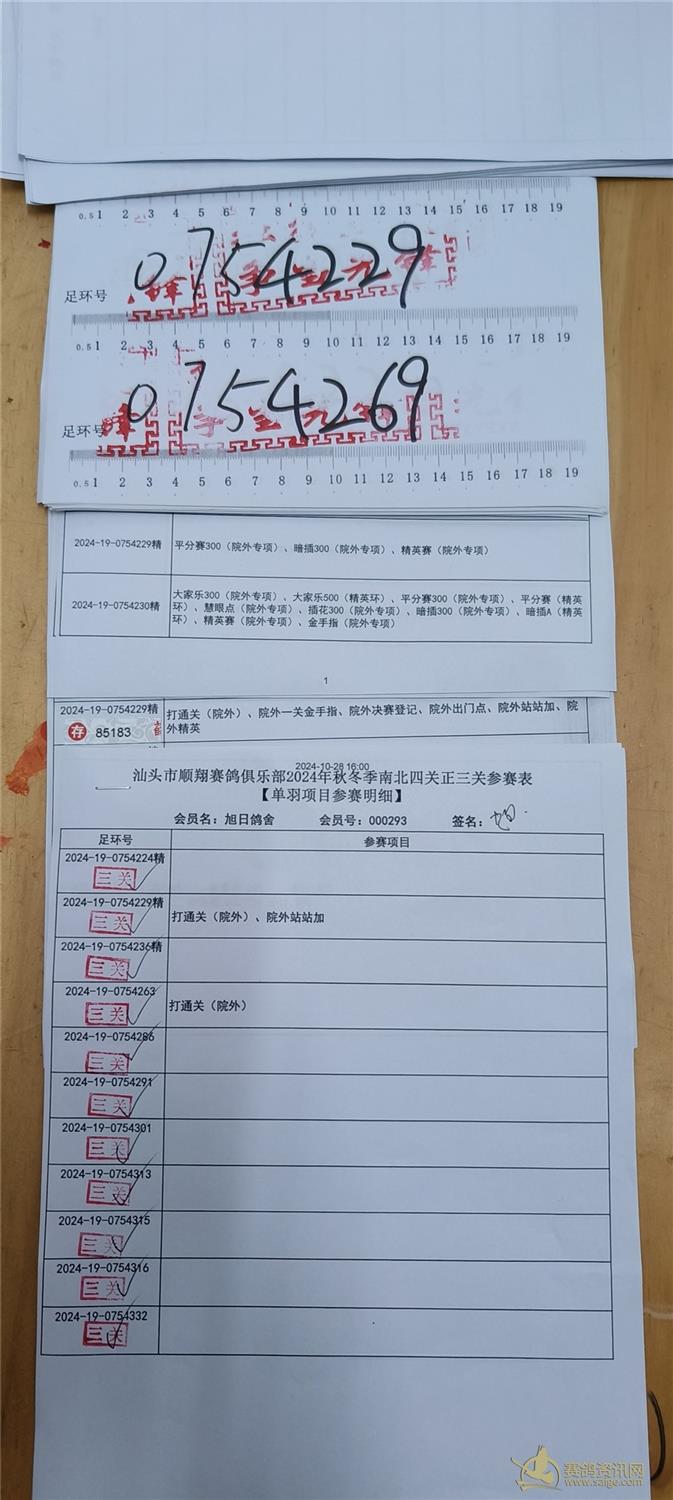 0.5 1 2 3 4 5 6 7 8 9 10 11 12 13 14 15 16 17 18 19
足环号 0754229
0.5 1 2 3 4 5 6 7 8 9 10 11 12 13 14 15 16 17 18 19
足环号 0754269
0.5 1 2 3 4 5 6 7 8 9 10 11 12 13 14 15 16 17 18 19
2024-19-0754229精 平分赛300（院外专项）、暗插300（院外专项）、精英赛（院外专项）
2024-19-0754230精 大家乐300（院外专项）、大家乐500（精英环）、平分赛300（院外专项）、平分赛（精英
环）、慧眼点（院外专项）、插花300（院外专项）、暗插300（院外专项）、暗插A（精英
环）、精英赛（院外专项）、金手指（院外专项）
1
2024-19-0754229精 打通关（院外）、院外一关金手指、院外决赛登记、院外出门点、院外站站加、院
存 85183 外精英
2024-10-28 16:00
汕头市顺翔赛鸽俱乐部2024年秋冬季南北四关正三关参赛表
【单羽项目参赛明细】
会员名：旭日鸽舍 会员号：000293 签名：
足环号 参赛项目
2024-19-0754224精
三关
2024-19-0754229精
三关 打通关（院外）、院外站站加
2024-19-0754236精
三关
2024-19-0754263
三关 打通关（院外）
2024-19-0754286
三关
2024-19-0754291
三关
2024-19-0754301
三关
2024-19-0754313
三关
2024-19-0754315
三关
2024-19-0754316
三关
2024-19-0754332
三关
赛鸽资讯网
www.saige.com